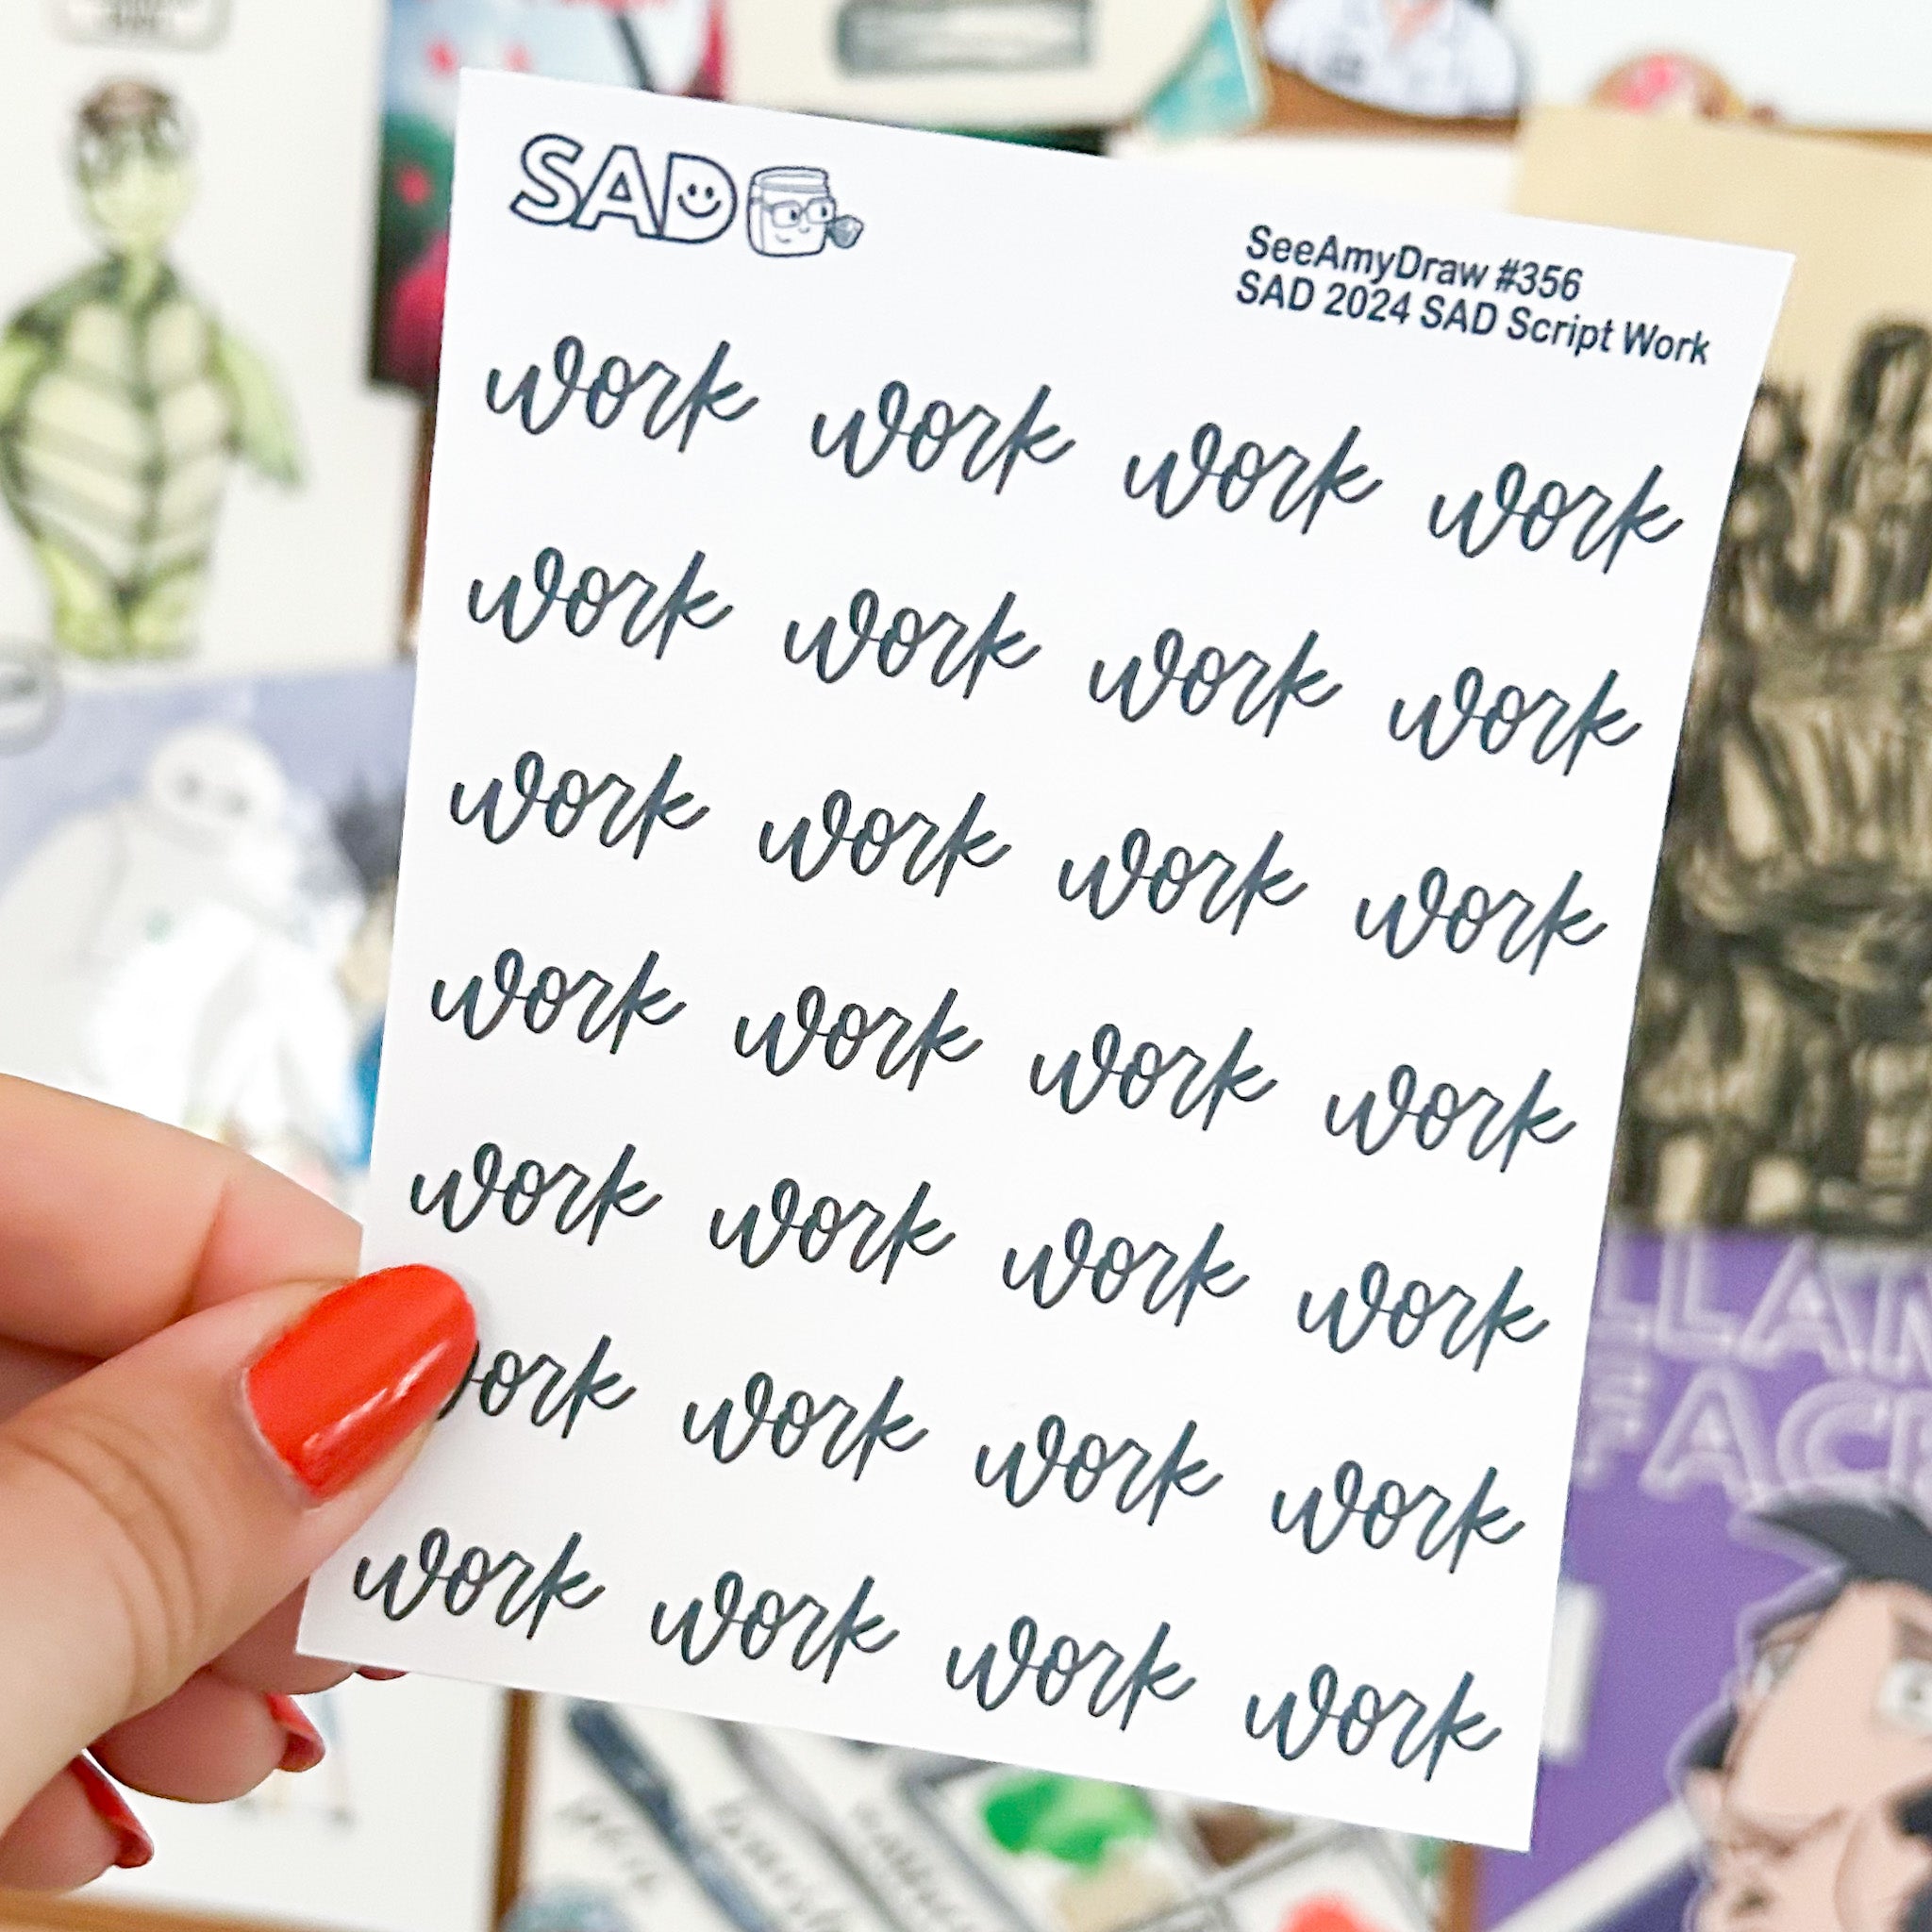 SAD
SeeAmyDraw #356
SAD 2024 SAD Script Work
work work work work
work work work work
work work work work
work work work work
work work work work
ork work work work
work work work work
LLAM
FACE